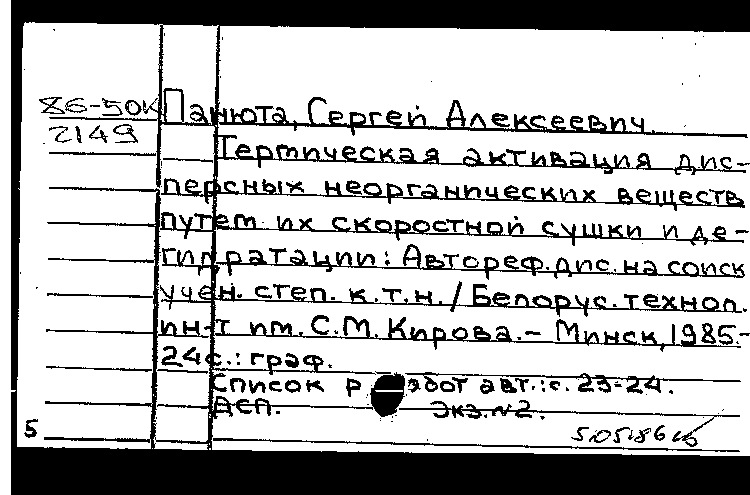 86-50К Панюта, Сергей Алексеевич.
2149
Термическая активация дис-
персных неорганических веществ
путем их скоростной сушки и де-
гидратации: Автореф. дис. на соиск
учен. степ. к.т.н. / Белорус. технол.
ин-т им. С.М. Кирова. – Минск, 1985.-
24с.: граф.
Список работ авт.: с. 23-24.
ДСП. Экз. №2.
5